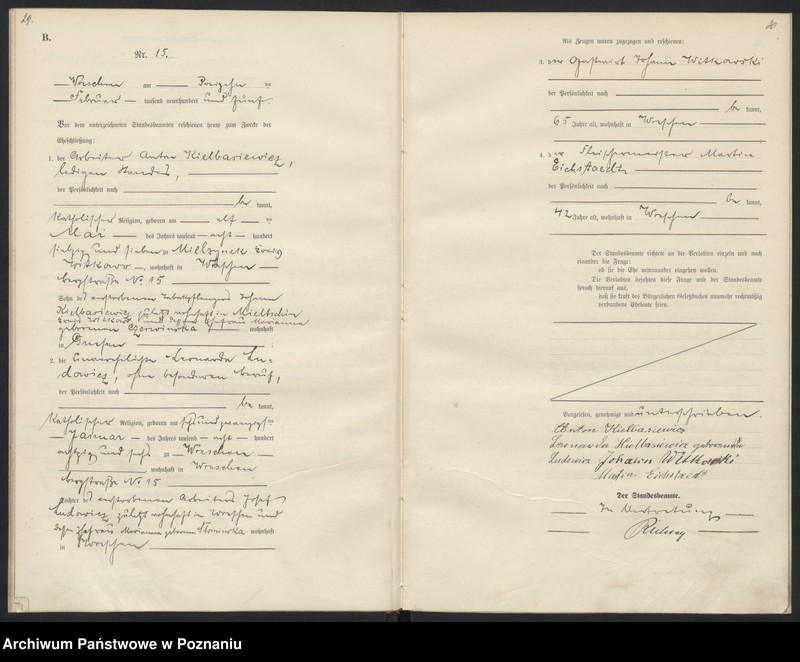 29.
B.
Nr. 15.
Wreschen am Dreizehnten
Februar tausend neunhundert und fünf.
Vor dem unterzeichneten Standesbeamten erschienen heute zum Zwecke der
Eheschließung:
1. der Arbeiter Anton Kielbasiewicz,
ledigen Standes,
der Persönlichkeit nach
be kannt,
katholischer Religion, geboren am elf ten
Mai des Jahres tausend acht hundert
siebzig und sieben zu Mielzynek Kreis
Witkowo, wohnhaft in Wreschen
bergstraße No 15
Sohn des verstorbenen Johann
Kielbasiewicz zuletzt wohnhaft in Mieltschin
Kreis Witkowo und dessen Ehefrau Marianna
geborenen Czerwinska wohnhaft
in Gnesen
2. die unverehelichte Leonarda Lu-
dowicz, ohne besonderen Beruf,
der Persönlichkeit nach
be kannt,
katholischer Religion, geboren am
Januar des Jahres tausend acht hundert
achtzig und sechs zu Wreschen
wohnhaft in Wreschen
bergstraße No 15
Tochter des verstorbenen Arbeiters Josef
Ludowicz, zuletzt wohnhaft in Wreschen und
dessen Ehefrau Marianna geborenen Slominska wohnhaft
in Wreschen
30
Als Zeugen waren zugezogen und erschienen:
3. der Gastwirt Johann Witkowski
der Persönlichkeit nach
be kannt,
65 Jahre alt, wohnhaft in Wreschen
4. der Fleischermeister Martin
Eichstaedt
der Persönlichkeit nach
be kannt,
42 Jahre alt, wohnhaft in Wreschen
Der Standesbeamte richtete an die Verlobten einzeln und nach
einander die Frage:
ob sie die Ehe miteinander eingehen wollen.
Die Verlobten bejahten diese Frage und der Standesbeamte
sprach hierauf aus,
daß sie kraft des Bürgerlichen Gesetzbuches nunmehr rechtmäßig
verbundene Eheleute seien.
Vorgelesen, genehmigt und unterschrieben.
Anton Kielbasiewicz
Leonarda Kielbasiewicz geborene
Ludowicz Johann Witkowski
Martin Eichstaedt
Der Standesbeamte.
In Vertretung
Archiwum Państwowe w Poznaniu